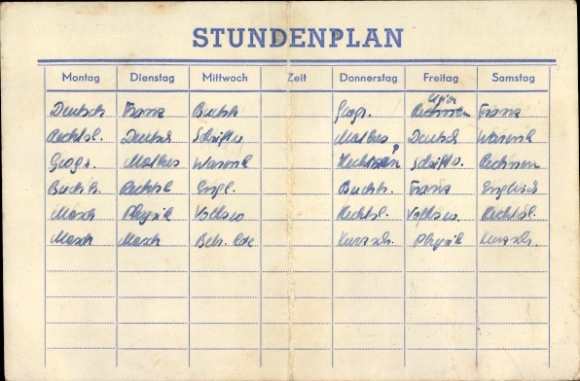 STUNDENPLAN
Montag Dienstag Mittwoch Zeit Donnerstag Freitag Samstag
Deutsch Franz Buchh. Geogr. Franz
Rechtsl. Deutsch Schriftv. Mathes Deutsch Warenk
Geogr. Mathes Warenk Schriftv. Rechnen
Buchh. Rechtsl Engl. Buchh. Franz Englisch
Masch Physik Volksw Rechtsl. Volksw Rechtsl.
Masch Masch Kurzsch. Physik Kurzsch.